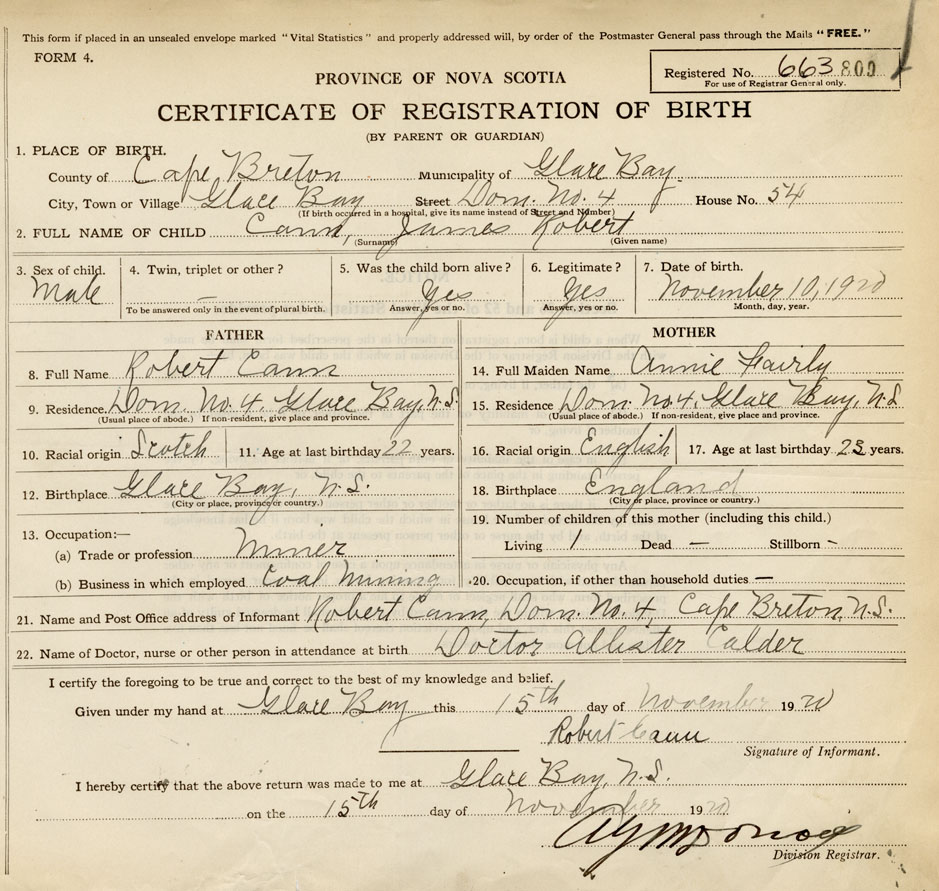 This form if placed in an unsealed envelope marked "Vital Statistics" and properly addressed will, by order of the Postmaster General pass through the Mails "FREE."
FORM 4.
Registered No. 663 800
For use of Registrar General only.
PROVINCE OF NOVA SCOTIA
CERTIFICATE OF REGISTRATION OF BIRTH
(BY PARENT OR GUARDIAN)
1. PLACE OF BIRTH.
County of Cape Breton Municipality of Glace Bay
City, Town or Village Glace Bay Street Dom. No. 4 House No. 54
(If birth occurred in a hospital, give its name instead of Street and Number)
2. FULL NAME OF CHILD Cann, James Robert
(Surname) (Given name)
3. Sex of child. 4. Twin, triplet or other? 5. Was the child born alive? 6. Legitimate? 7. Date of birth.
Male — Yes Yes November 10, 1920
To be answered only in the event of plural birth. Answer, yes or no. Answer, yes or no. Month, day, year.
FATHER MOTHER
8. Full Name Robert Cann 14. Full Maiden Name Annie Fairly
9. Residence. Dom. No. 4, Glace Bay, N.S. 15. Residence Dom. No. 4, Glace Bay, N.S
(Usual place of abode.) If non-resident, give place and province. (Usual place of abode.) If non-resident, give place and province.
10. Racial origin Scotch 11. Age at last birthday 22 years. 16. Racial origin English 17. Age at last birthday 23 years.
12. Birthplace Glace Bay, N.S. 18. Birthplace England
(City or place, province or country.) (City or place, province or country.)
13. Occupation:— 19. Number of children of this mother (including this child.)
(a) Trade or profession Miner Living 1 Dead — Stillborn -
(b) Business in which employed Coal Mining 20. Occupation, if other than household duties —
21. Name and Post Office address of Informant Robert Cann, Dom. No. 4, Cape Breton, N.S.
22. Name of Doctor, nurse or other person in attendance at birth Doctor Allister Calder
I certify the foregoing to be true and correct to the best of my knowledge and belief.
Given under my hand at Glace Bay this 15th day of November 1920
Robert Cann
Signature of Informant.
I hereby certify that the above return was made to me at Glace Bay, N.S.
on the 15th day of November 1920
Division Registrar.